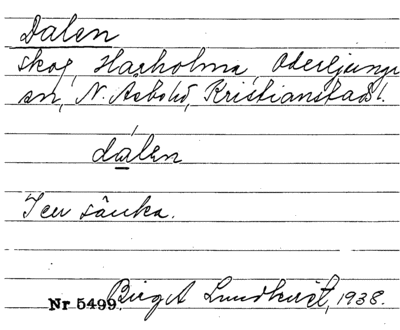 Dalen
skog, Haxholma, Oderljunga
sn, N. Åsbo hd, Kristianstads l.
dálen
I en sänka.
Nr 5499. Birgit Lundkvist, 1938.